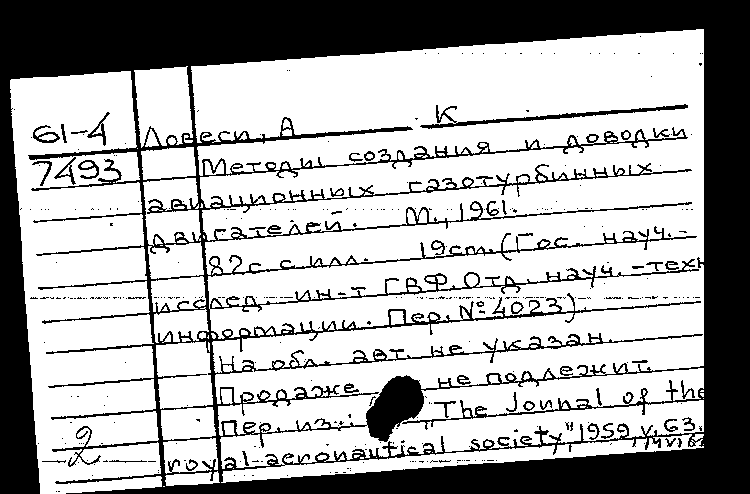 61-4 Ловеси, А К
7493 Методы создания и доводки
авиационных газотурбинных
двигателей. М., 1961.
82с. с илл. 19cm. (Гос. науч.-
исслед. ин-т ГВФ. Отд. науч.-техн
информации. Пер. № 4023).
На обл. авт. не указан.
Продаже не подлежит.
Пер. из: "The Jounal of the
2 royal aeronautical society", 1959, v. 63.